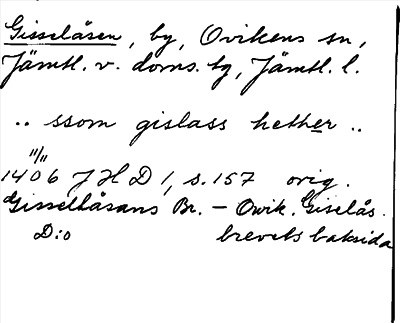 Gisselåsen, by, Ovikens sn,
Jämtl. v. doms. tg, Jämtl. l.
.. ssom gislass hether ..
11/11
1406 JHD 1, s. 157 orig.
Gissellåsans Br. – Owik. Giselås.
D:o brevets baksida